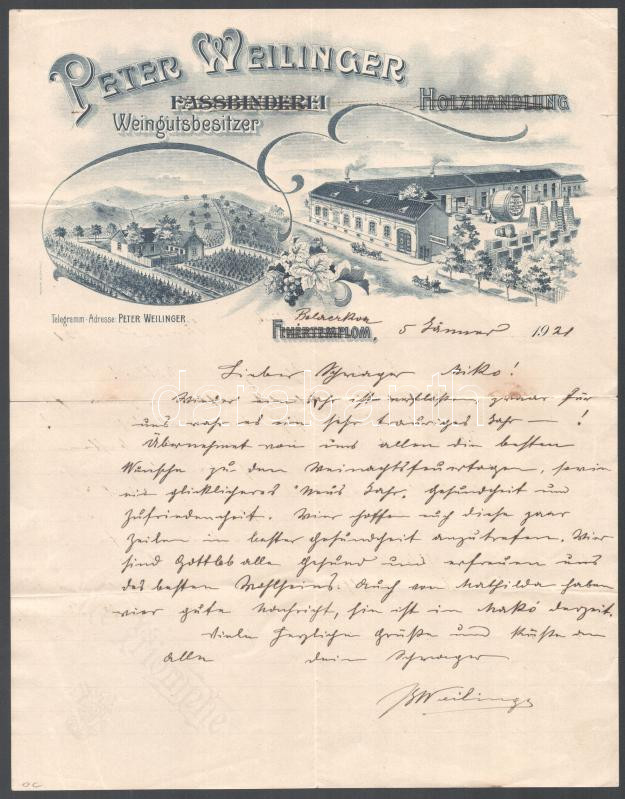 PETER WEILINGER
FASSBINDEREI HOLZHANDLUNG
Weingutsbesitzer
Telegramm-Adresse: PETER WEILINGER.
FEHÉRTEMPLOM, 5 Jänner 1921
Lieber Schwager Biko!
Wieder ein Jahr ist verflossen zwaar für
uns wahr es ein sehr trauriges Jahr — !
Übernehmet von uns allen die besten
Wünsche zu den Weinachtsfeuertagen, sowie
ein glickliches Neus Jahr, Gesundheit und
Zufriedenheit. Wier hoffen euch diese paar
Zeilen in bester Gesundheit anzutrefen. Wier
sind Gottlob alle gesund und erfreuen uns
des besten Wohlseins. Auch von Mathilda haben
wier gute Nachricht, sie ist in Makó derzeit.
Viele herzliche Grüße und Küsse an
alle dein Schwager
Weilinger